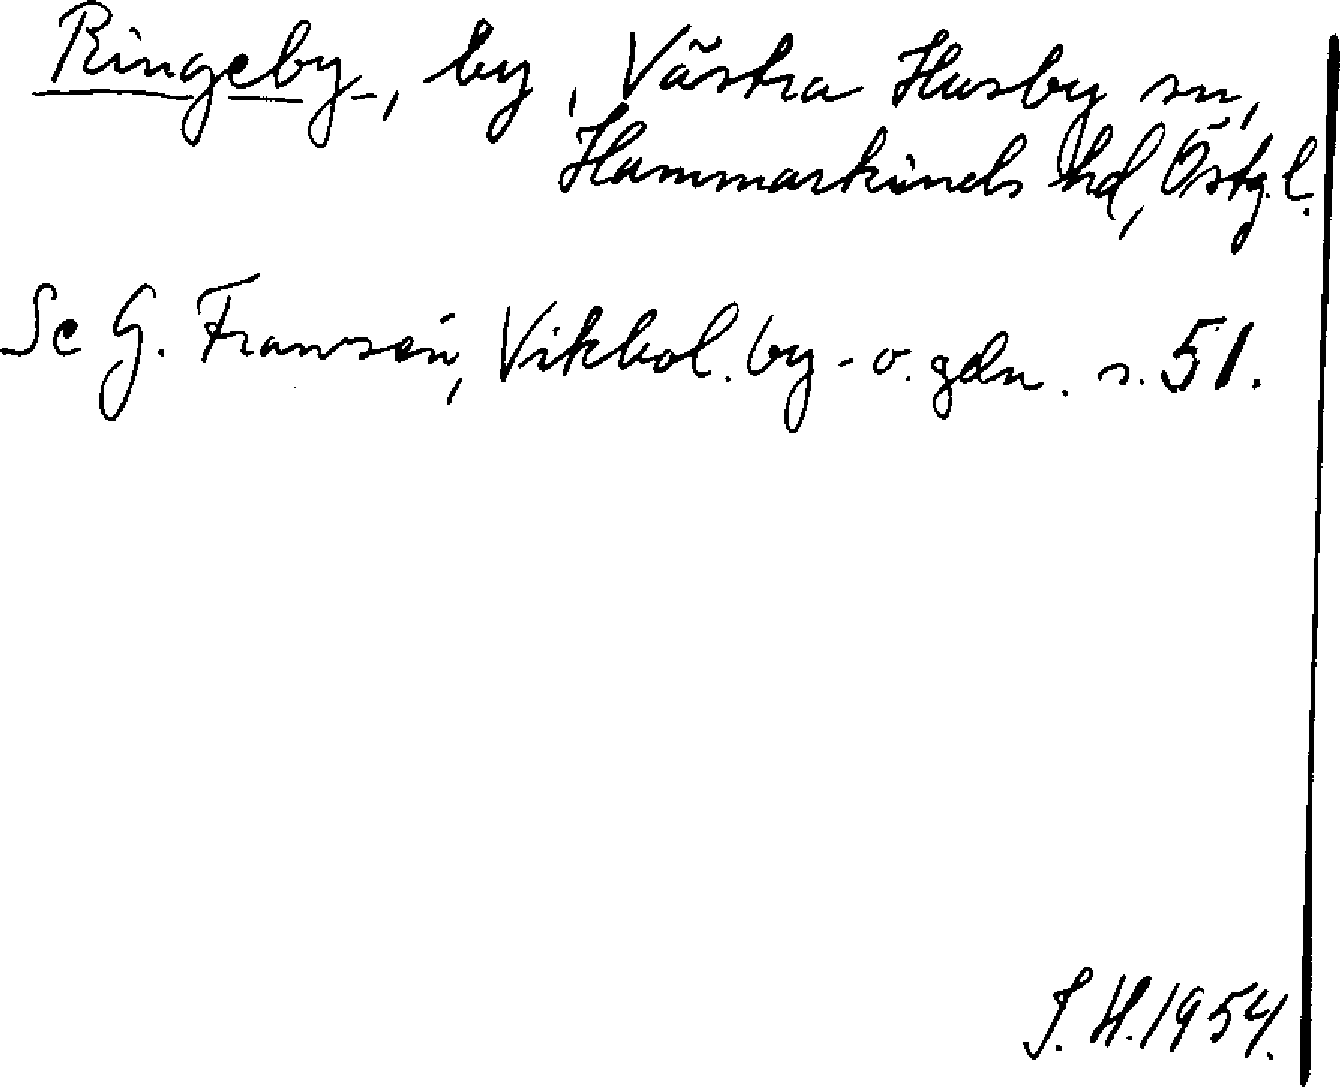 Ringeby, by, Västra Husby sn,
Hammarkinds hd, Östg.l.
Se G. Fransén, Vikbol. by- o. gdn. s. 51.
S. H. 1954.